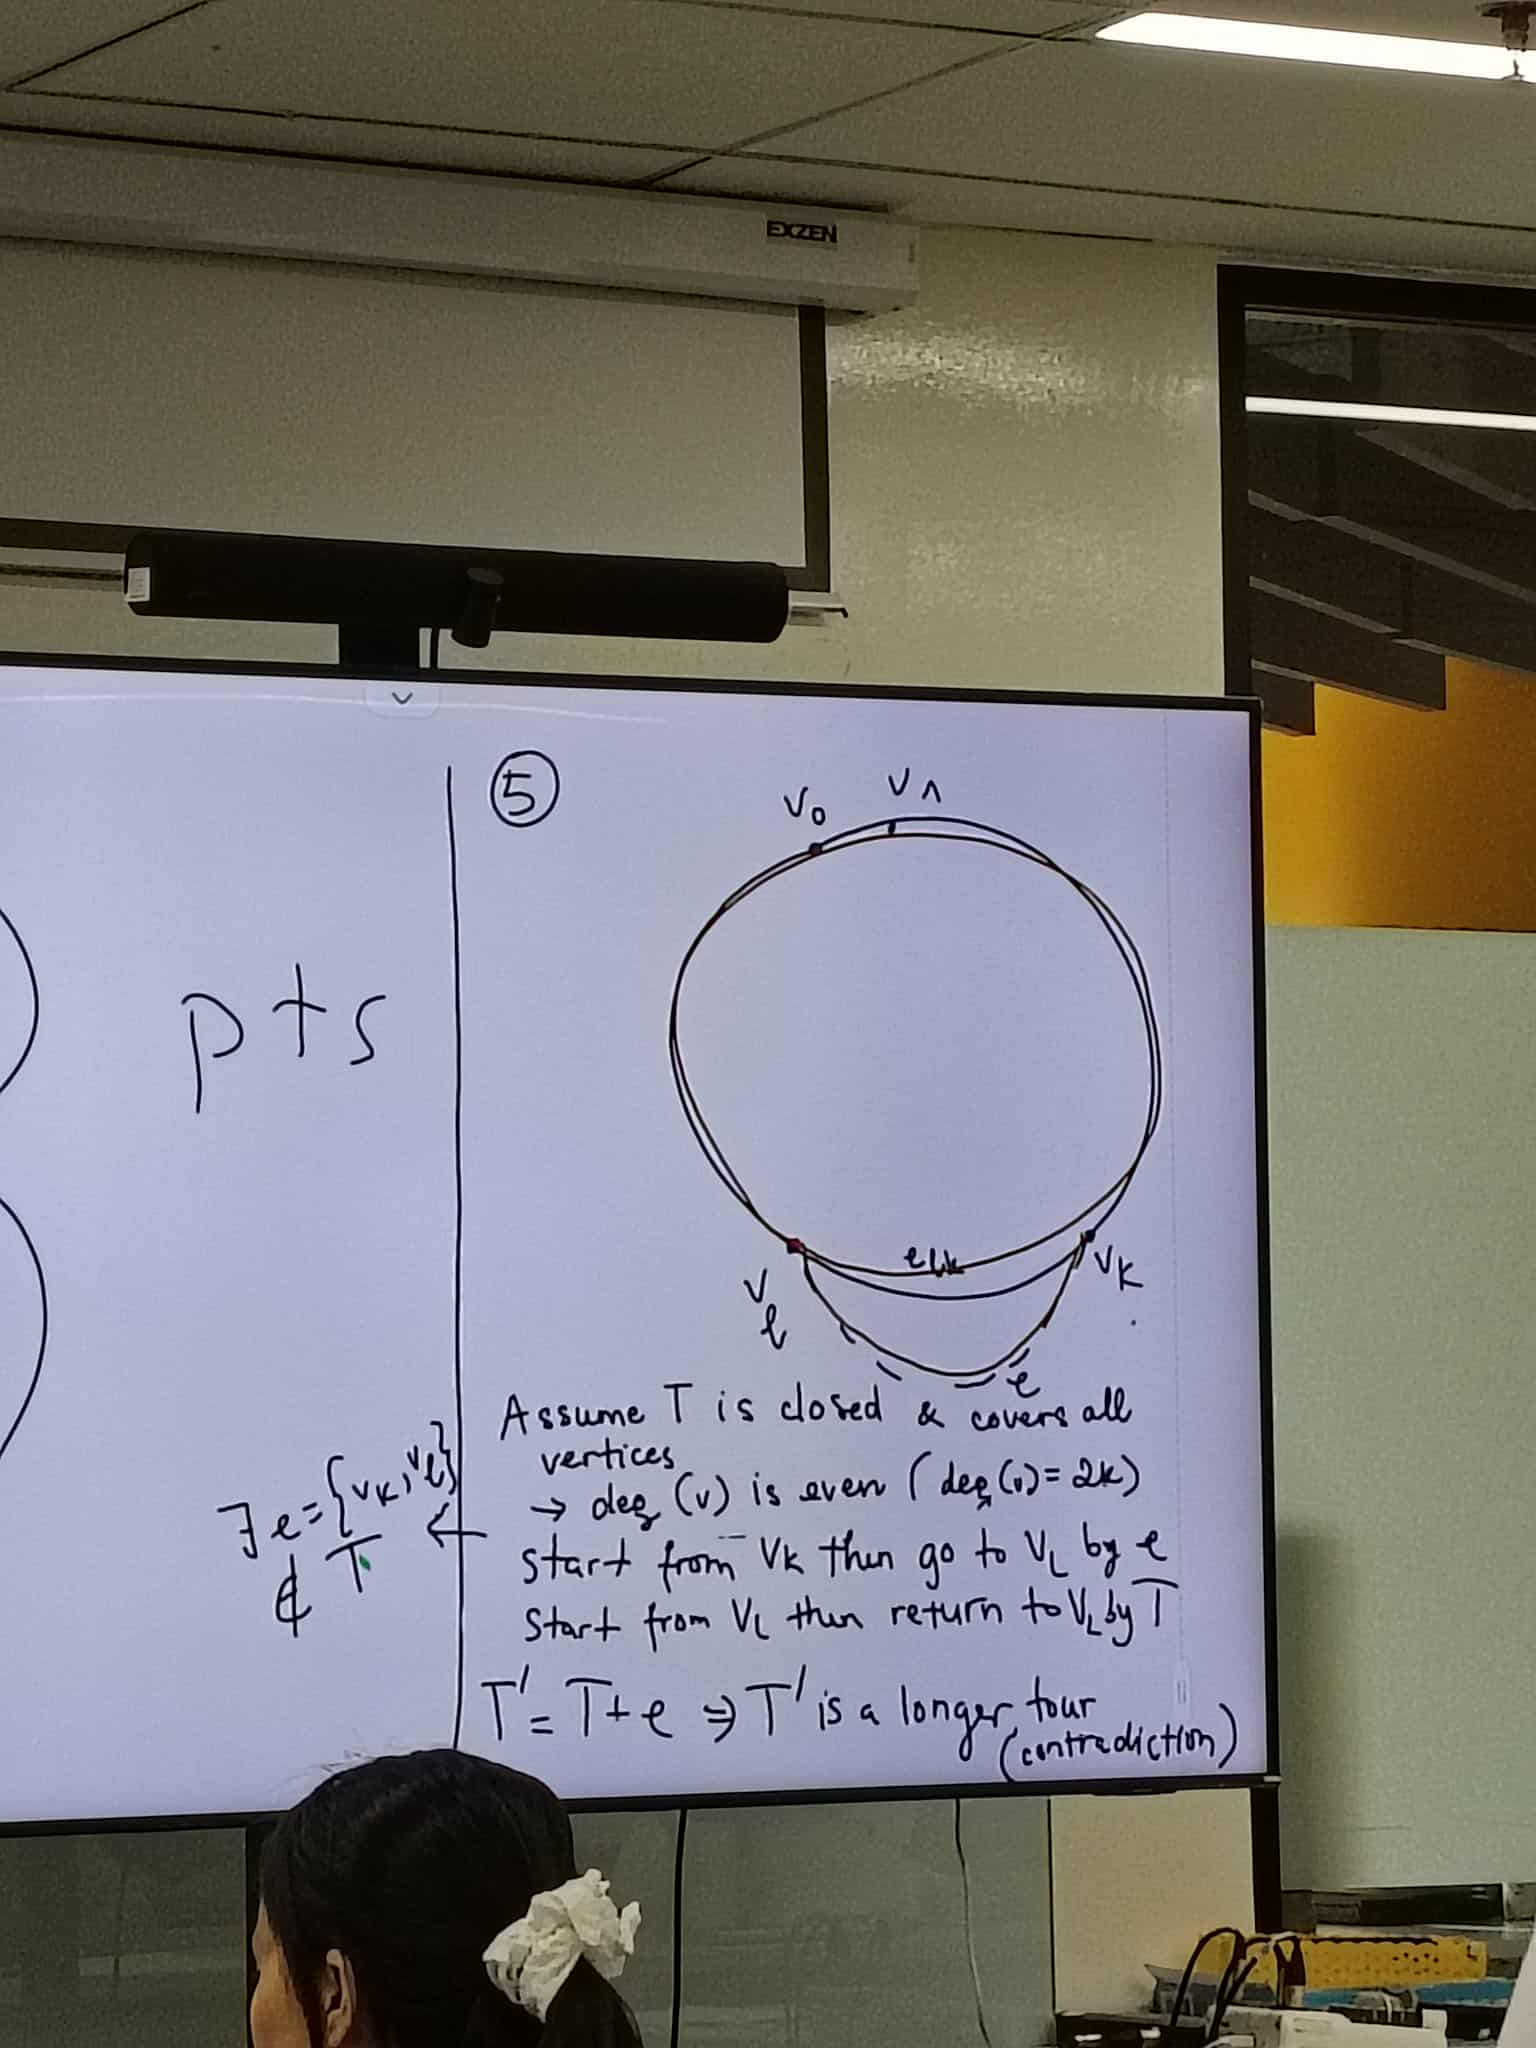 EXZEN
pts
∃ e = {vk, vl}
∉ T
⑤
v0
v1
el,k
vl
vk
e
Assume T is closed & covers all
vertices
→ deg (v) is even (deg(v) = 2k)
←
start from vk then go to vL by e
start from vL then return to vL by T
T' = T+e ⇒ T' is a longer tour
(contradiction)